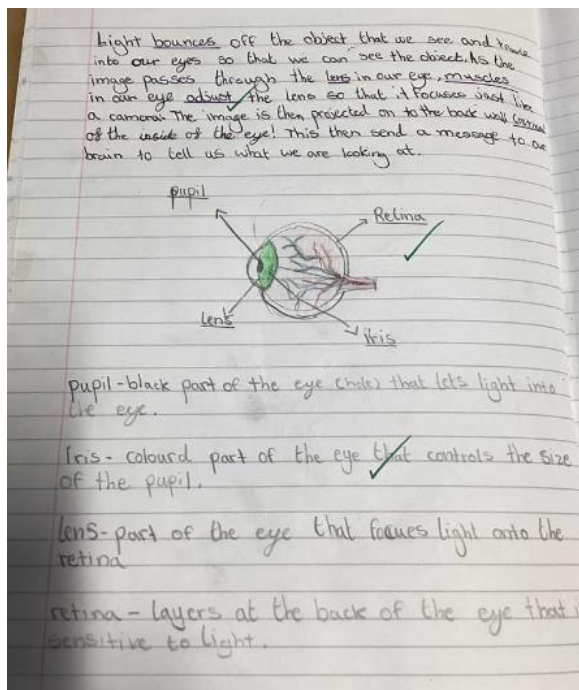 Light bounces off the object that we see and
into our eyes so that we can see the object. As the
image passes through the lens in our eye, muscles
in our eye adjust the lens so that it focuses just like
a camera. The image is then projected on to the back wall
of the inside of the eye! This then send a message to our
brain to tell us what we are looking at.
pupil
Retina
Lens
iris
pupil-black part of the eye (hole) that lets light into
the eye.
Iris- colourd part of the eye that controls the size
of the pupil.
lens-part of the eye that focues light onto the
retina
retina - layers at the back of the eye that
sensitive to light.